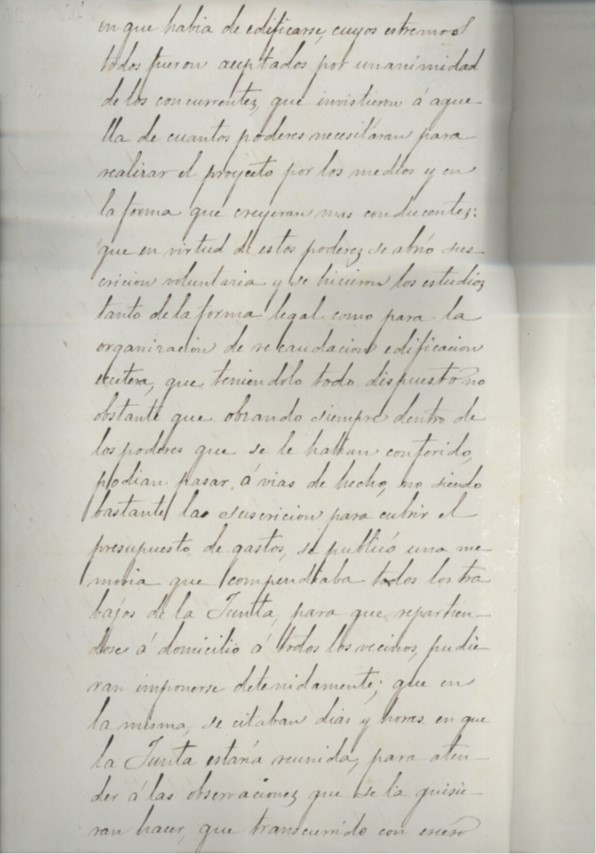 en que habia de edificarse, cuyos estremos
todos fueron aceptados por unanimidad
de los concurrentes, que invistieron á aque-
lla de cuantos poderes necesitáran para
realizar el proyecto por los medios y en
la forma que creyeran mas conducentes:
que en virtud de estos poderes se abrió sus-
cricion voluntaria y se hicieron los estudios
tanto de la forma legal como para la
organizacion de recaudacion edificacion
etcetera, que teniendolo todo dispuesto no
obstante que obrando siempre dentro de
los poderes que se le habian conferido,
podian pasar á vias de hecho, no siendo
bastante la suscricion para cubrir el
presupuesto de gastos, se publicó una me-
moria que compendiaba todos los tra
bajos de la Junta, para que repartien-
dose á domicilio á todos los vecinos, pudie-
ran imponerse detenidamente; que en
la misma, se citaban dias y horas en que
la Junta estaria reunida, para aten-
der á las observaciones que se la quisie-
ran hacer, que transcurrido con esceso